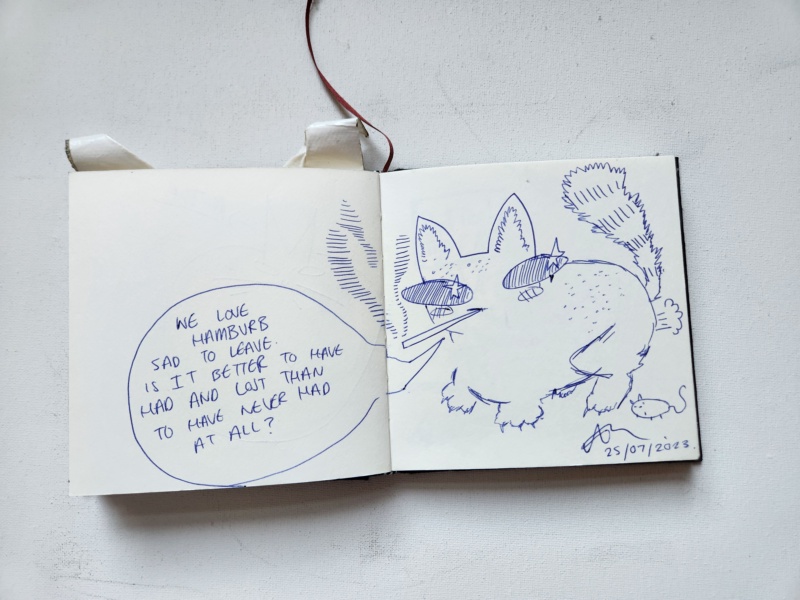 WE LOVE
HAMBURB
SAD TO LEAVE.
IS IT BETTER TO HAVE
HAD AND LOST THAN
TO HAVE NEVER HAD
AT ALL?
25/07/2023.